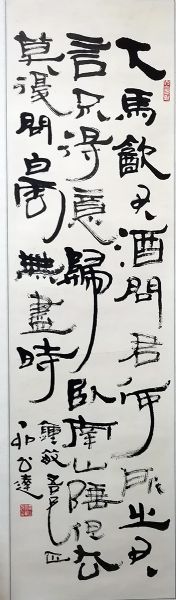 下馬飲君酒問君何所之君
言不得意歸臥南山陲但去
莫復問白雲無盡時
敏吾兄正